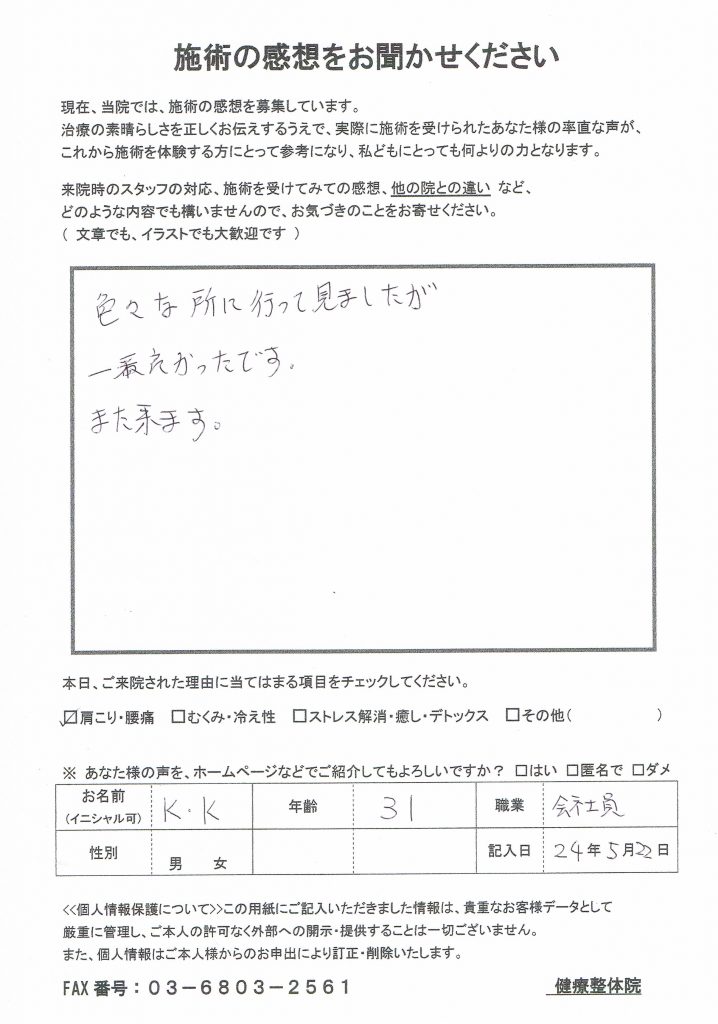 施術の感想をお聞かせください
現在、当院では、施術の感想を募集しています。
治療の素晴らしさを正しくお伝えするうえで、実際に施術を受けられたあなた様の率直な声が、
これから施術を体験する方にとって参考になり、私どもにとっても何よりの力となります。
来院時のスタッフの対応、施術を受けてみての感想、他の院との違い など、
どのような内容でも構いませんので、お気づきのことをお寄せください。
( 文章でも、イラストでも大歓迎です )
色々な所に行って見ましたが
一番良かったです。
また来ます。
本日、ご来院された理由に当てはまる項目をチェックしてください。
☑肩こり・腰痛 □むくみ・冷え性 □ストレス解消・癒し・デトックス □その他( )
※ あなた様の声を、ホームページなどでご紹介してもよろしいですか? □はい □匿名で □ダメ
お名前 (イニシャル可) K.K 年齢 31 職業 会社員
性別 男 女 記入日 24年5月22日
<<個人情報保護について>>この用紙にご記入いただきました情報は、貴重なお客様データとして
厳重に管理し、ご本人の許可なく外部への開示・提供することは一切ございません。
また、個人情報はご本人様からのお申出により訂正・削除いたします。
FAX 番号:03-6803-2561 健療整体院